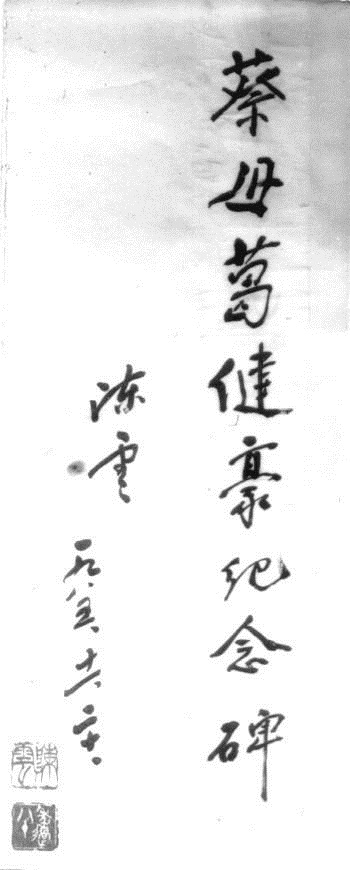 蔡母葛健豪纪念碑
陈云
一九八五、
陳雲